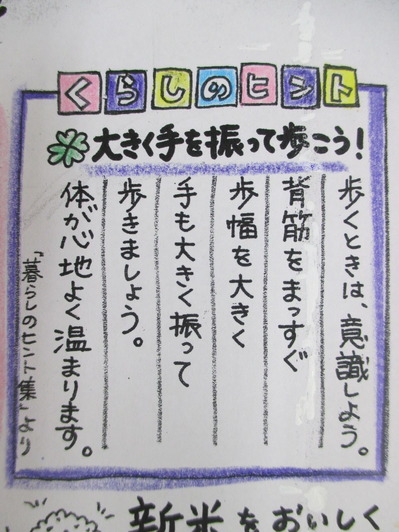 くらしのヒント
大きく手を振って歩こう!
歩くときは、意識しよう。
背筋をまっすぐ
歩幅を大きく
手も大きく振って
歩きましょう。
体が心地よく温まります。
「暮らしのヒント集」より
新米をおいしく